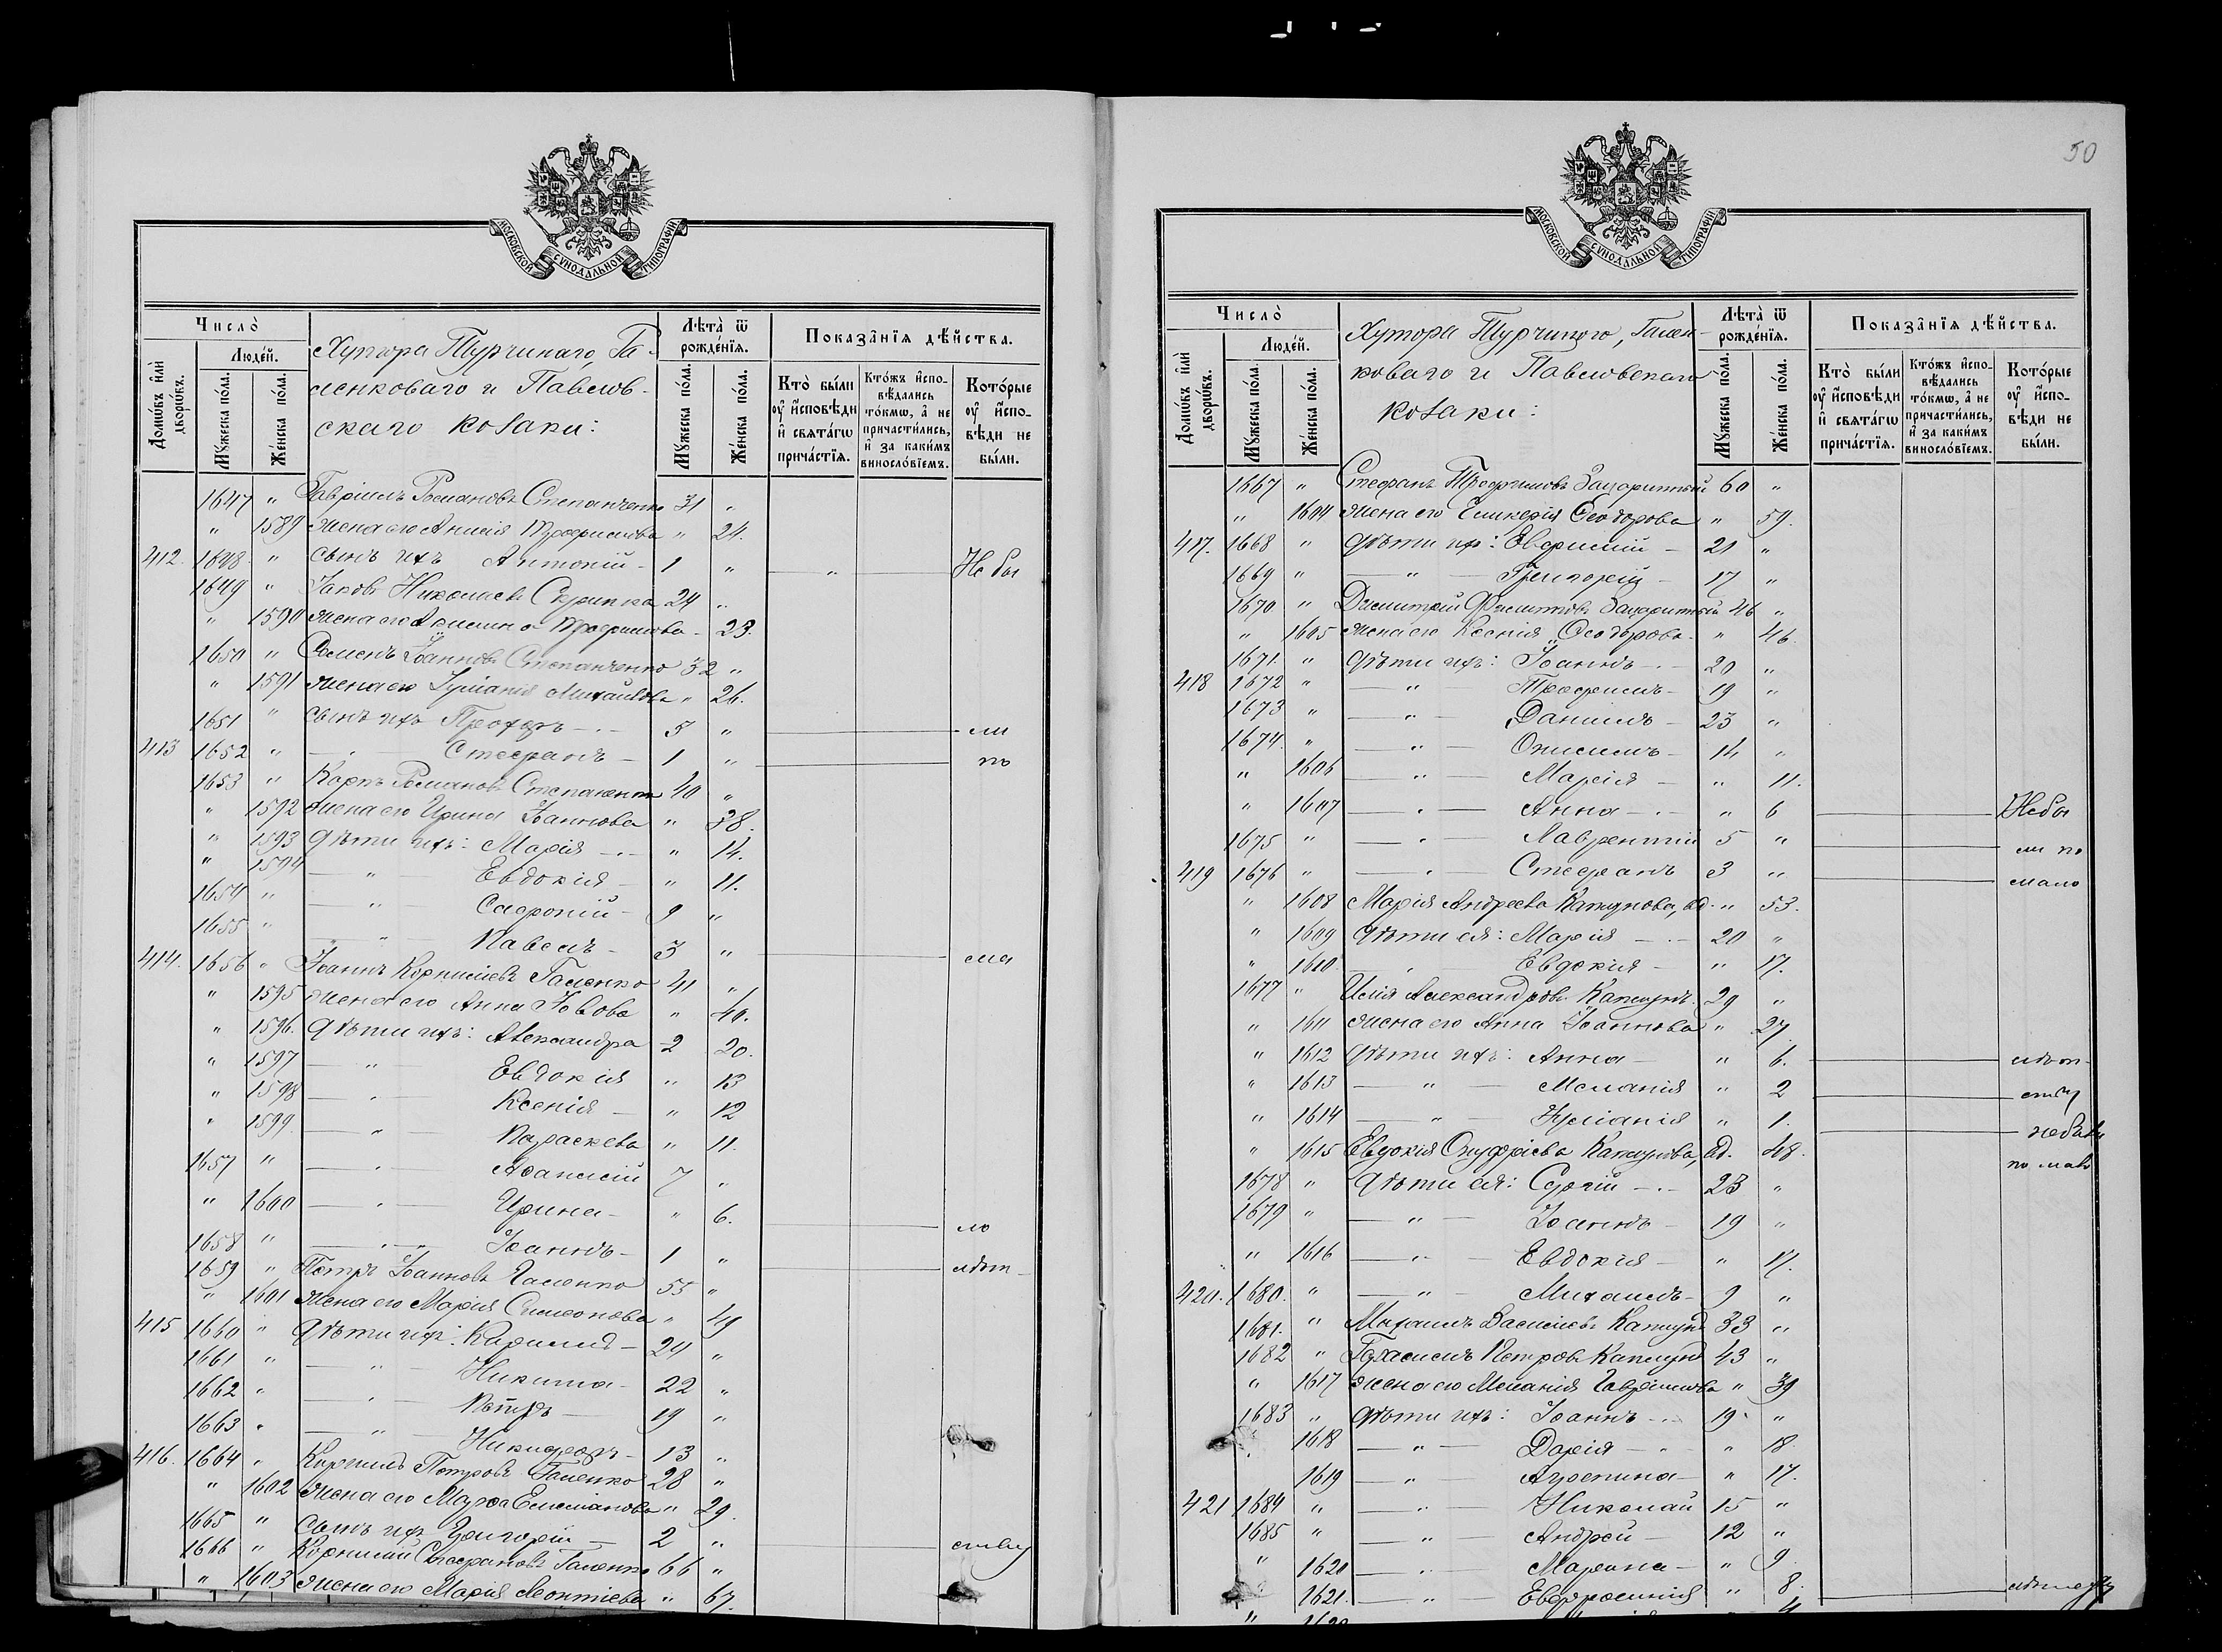 50
МОСКОВСКОЙ СѴНОДАЛЬНОЙ ТИПОГРАФІИ
Число̀
Домѡ́въ и҆лѝ дворѡ́въ.
Люде́й.
Мꙋ́жеска по́ла.
Же́нска по́ла.
Хутора Турчинаго, Га-
ленковаго и Павлов-
скаго козаки:
Лѣта̀ ѿ рожде́нїѧ.
Мꙋ́жеска по́ла.
Же́нска по́ла.
Показа̑нїѧ дѣ́йства.
Кто̀ бы́ли оу҆ и҆сповѣ́ди и҆ свѧта́гѡ прича́стїѧ.
Кто́жъ и҆спо-вѣ́дались то́кмѡ, а҆ не причасти́лись, и҆ за каки́мъ винослѡ́вїемъ.
Кото́рые оу҆ и҆спо-вѣ́ди не бы́ли.
1647 " Гавріилъ Романовъ Степанченко 31 "
" 1589 жена его Анисія Трофимова " 24.
412. 1648. " сынъ ихъ Антоній - 1 " " Не бы
1649 " Іаковъ Николаевъ Скрипка 24 "
" 1590 жена его Акилина Трофимова - 23.
1650 " Семенъ Іоанновъ Степанченко 32 "
" 1591 жена его Іуліанія Михайлова " 26.
1651 " сынъ ихъ Прохоръ 5 " ли
413 1652 " " Стефанъ - 1 " по
1653 " Карпъ Романовъ Степаненко 40 "
" 1592 жена его Ирина Іоаннова " 38.
" 1593 дѣти ихъ: Марія " 14.
" 1594 " Евдокія " 11.
1654 " " Софроній - 9 "
1655 " " Павелъ - 3 " ма
414. 1656 " Іоаннъ Корнилievъ Галенко 41 "
" 1595 жена его Анна Іовова " 40.
" 1596. дѣти ихъ: Александра 20.
" 1597 " Евдокія " 13
" 1598 " Ксенія " 12
" 1599 " Параскева " 11.
1657 " " Афанасій 7 "
" 1600 " Ирина - " 6. ло
1658 " " Іоаннъ - 1 " лѣт-
1659 " Петръ Іоанновъ Галенко 55 "
" 1601 жена его Марія Симеонова " 49
415 1660 " дѣти ихъ: Кириллъ - 24 "
1661 " " Никита - 22 "
1662 " " Петръ 19 "
1663 " " Никифоръ - 13 "
416. 1664 " Кириллъ Петровъ Галенко 28 "
" 1602 жена его Марфа Емеліанова " 29.
1665 " сынъ ихъ Григорій 2 " ству
1666 " Корнилій Стефановъ Галенко 66 "
" 1603 жена его Марія Леонтіева " 67.
МОСКОВСКОЙ СѴНОДАЛЬНОЙ ТИПОГРАФІИ
Число̀
Домѡ́въ и҆лѝ дворѡ́въ.
Люде́й.
Мꙋ́жеска по́ла.
Же́нска по́ла.
Хутора Турчинаго, Гален-
коваго и Павловскаго
козаки:
Лѣта̀ ѿ рожде́нїѧ.
Мꙋ́жеска по́ла.
Же́нска по́ла.
Показа̑нїѧ дѣ́йства.
Кто̀ бы́ли оу҆ и҆сповѣ́ди и҆ свѧта́гѡ прича́стїѧ.
Кто́жъ и҆спо-вѣ́дались то́кмѡ, а҆ не причасти́лись, и҆ за каки́мъ винослѡ́вїемъ.
Кото́рые оу҆ и҆спо-вѣ́ди не бы́ли.
1667 " Стефанъ Трофимовъ 60 "
" 1604 жена его Гликерія Ѳеодорова " 59.
417. 1668 " дѣти ихъ: Евфимій - 21 "
1669 " " Григорій - 17 "
1670 " Димитрій Филипповъ 46 "
" 1605 жена его Ксенія Ѳеодорова " 46.
1671. " дѣти ихъ: Іоаннъ 20 "
418 1672 " " Трофимъ - 19 "
1673 " " Даніилъ - 23 "
1674. " " Онисимъ - 14 "
" 1606 " Марія " 11.
" 1607 " Анна " 6 Не бы
1675 " " Лаврентій 5 " ли по
419 1676 " " Стефанъ 3 " мало
" 1608 Марія Андреева Капшукова, вд. " 53.
" 1609 дѣти ея: Марія 20 "
" 1610 " Евдокія - " 17.
1677 " Илія Александровъ 29 "
" 1611 жена его Анна Іоаннова " 27
" 1612 дѣти ихъ: Анна " 6. лѣт-
" 1613 " Меланія " 2 ству
" 1614 " Іуліанія " 1.
" 1615 Евдокія Онуфріева вд. 48. по мало
1678 " дѣти ея: Сергій 23 "
1679 " " Іоаннъ 19 "
" 1616 " Евдокія " 17.
420. 1680. " " Михаилъ - 9 "
1681. " Михаилъ Василіевъ 33 "
1682 " Герасимъ Петровъ 43 "
" 1617 жена его Меланія Гавріилова " 39
1683 " дѣти ихъ: Іоаннъ 19 "
1618 " Дарія " 18.
1619 " Агрепина - " 17.
421 1684 " " Николай 15 "
1685 " " Андрей - 12 "
" 1620 " Марина - " 9
1621. " Евфросинія " 8. лѣтству